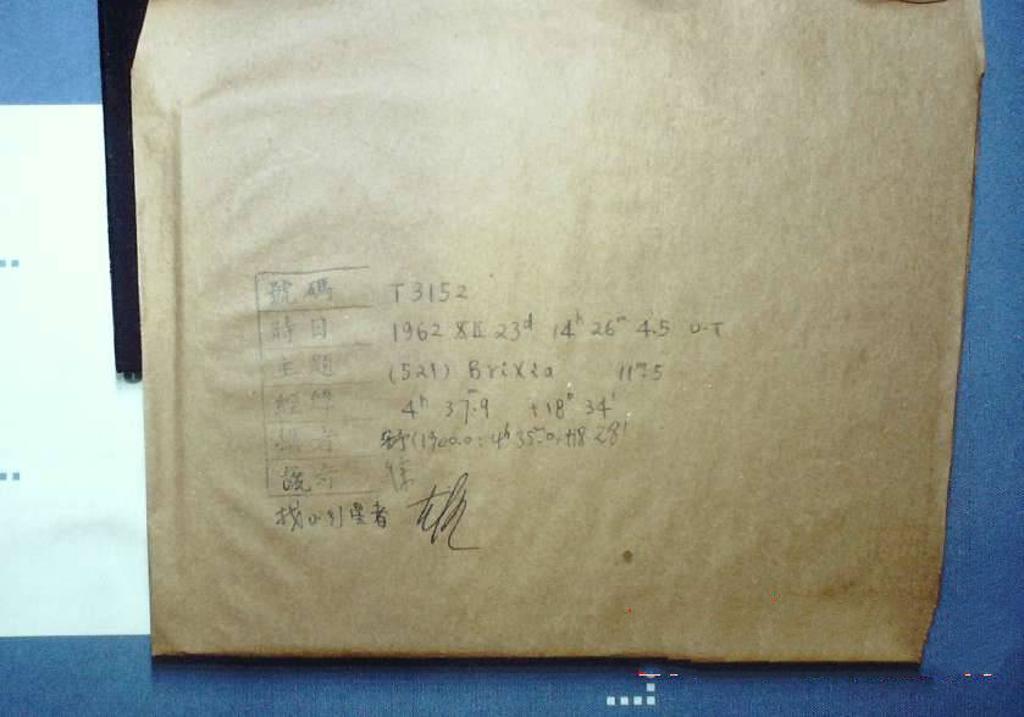 號碼 T3152
時日 1962 XII 23ᵈ 14ʰ 26ᵐ 4.5 U.T
主題 (521) Brixia 11ᵐ.5
經緯 4ʰ 37ᵐ.9 +18° 34'
(1900.0: 4ʰ 35ᵐ.0, +18 28'
張
找小行星者